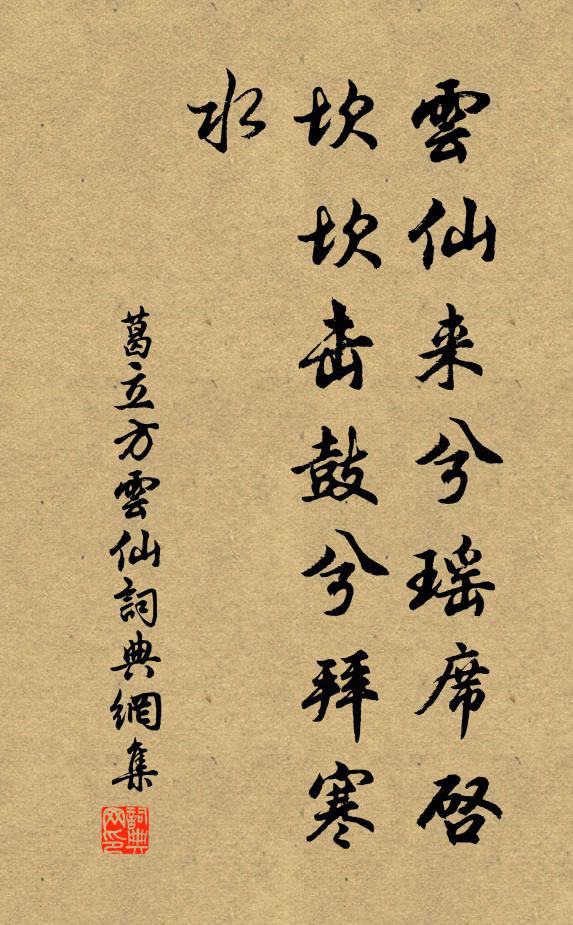 雲仙来兮瑶席啓
坎坎击鼓兮拜寒
水
葛立方雲仙詞典網集
詞典网印